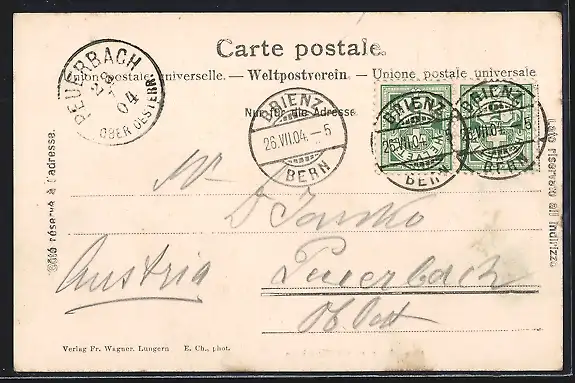 Carte postale.
Union postale universelle. — Weltpostverein — Unione postale universale
Nur für die Adresse.
PEUERBACH
04
OBER OESTERR.
BRIENZ
26.VII.04.—5
BERN
BRIENZ
26.VII.04.
BERN
BRIENZ
VII.04. 5
BERN
Côté réservé à l'adresse.
Lato riservato all'indirizzo
Mr
D Janko
Austria
Peuerbach
Ob Oest
Verlag Fr. Wagner, Lungern E. Ch., phot.